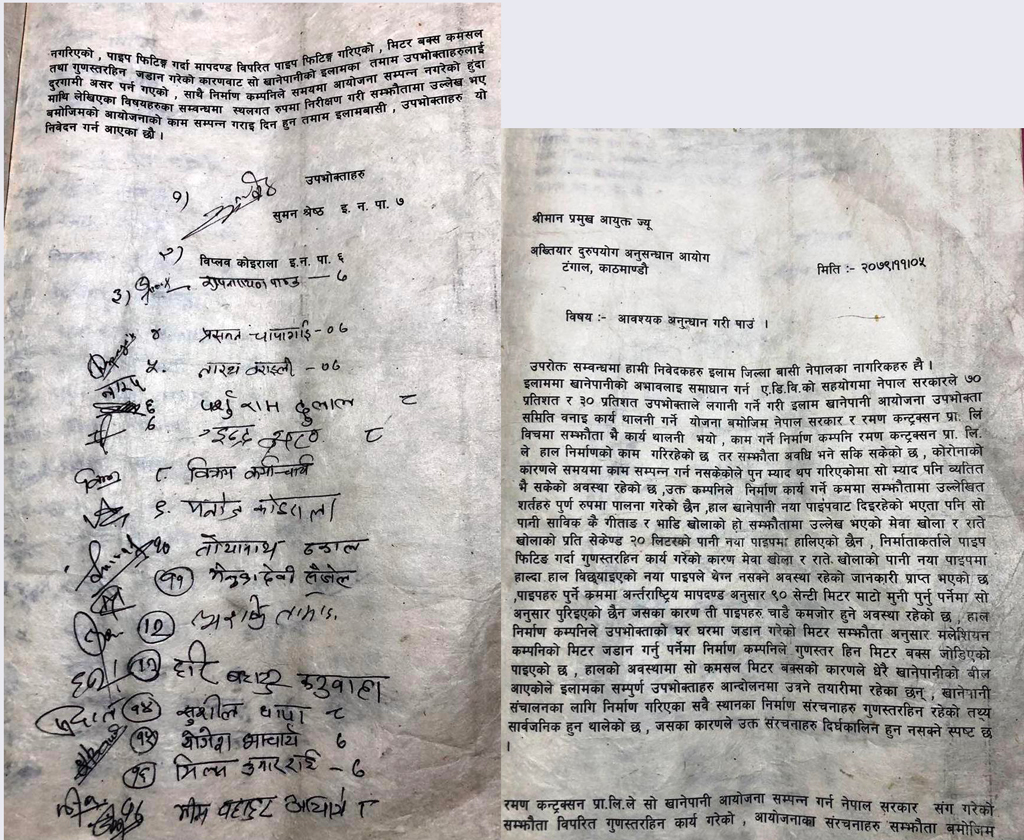 श्रीमान प्रमुख आयुक्त ज्यू
अख्तियार दुरुपयोग अनुसन्धान आयोग
टंगाल, काठमाण्डौ
मिति :- २०७९।११।०५
विषय :- आवश्यक अनुन्धान गरी पाउं ।
उपरोक्त सम्वन्धमा हामी निवेदकहरु इलाम जिल्ला बासी नेपालका नागरिकहरु हौ ।
इलाममा खानेपानीको अभावलाइ समाधान गर्न ए.डि.वि.को सहयोगमा नेपाल सरकारले ७०
प्रतिशत र ३० प्रतिशत उपभोक्ताले लगानी गर्ने गरी इलाम खानेपानी आयोजना उपभोक्ता
समिति वनाइ कार्य थालनी गर्ने योजना बमोजिम नेपाल सरकार र रमण कन्ट्रक्सन प्रा. लि
विचमा सम्झौता भै कार्य थालनी भयो , काम गर्ने निर्माण कम्पनि रमण कन्ट्रक्सन प्रा. लि.
ले हाल निर्माणको काम गरिरहेको छ तर सम्झौता अवधि भने सकि सकेको छ , कोरोनाको
कारणले समयमा काम सम्पन्न गर्न नसकेकोले पुन म्याद थप गरिएकोमा सो म्याद पनि व्यतित
भै सकेको अवस्था रहेको छ ,उक्त कम्पनिले निर्माण कार्य गर्ने कममा सम्झौतामा उल्लेखित
शर्तहरु पुर्ण रुपमा पालना गरेको छैन ,हाल खानेपानी नया पाइपवाट दिइरहेको भएता पनि सो
पानी साविक कै गीताङ र भाडि खोलाको हो सम्झौतामा उल्लेख भएको मेवा खोला र राते
खोलाको प्रति सेकेण्ड २० लिटरको पानी नया पाइपमा हालिएको छैन , निर्माताकर्ताले पाइप
फिटिङ गर्दा गुणस्तरहिन कार्य गरेको कारण मेवा खोला र राते खोलाको पानी नया पाइपमा
हाल्दा हाल विछ्याइएको नया पाइपले थेग्न नसक्ने अवस्था रहेको जानकारी प्राप्त भएको छ
,पाइपहरु पुर्ने कममा अर्न्तराष्ट्रिय मापदण्ड अनुसार ९० सेन्टी मिटर माटो मुनी पुर्नु पर्नेमा सो
अनुसार पुरिइएको छैन जसका कारण ती पाइपहरु चाडै कमजोर हुने अवस्था रहेको छ , हाल
निर्माण कम्पनिले उपभोक्ताको घर घरमा जडान गरेको मिटर सम्झौता अनुसार मलेशियन
कम्पनिको मिटर जडान गर्नु पर्नेमा निर्माण कम्पनिले गुणस्तर हिन मिटर बक्स जोडिएको
पाइएको छ , हालको अवस्थामा सो कमसल मिटर बक्सको कारणले धेरै खानेपानीको बील
आएकोले इलामका सम्पुर्ण उपभोक्ताहरु आन्दोलनमा उत्रने तयारीमा रहेका छन् , खानेपानी
संचालनका लागि निर्माण गरिएका सवै स्थानका निर्माण संरचनाहरु गुणस्तरहिन रहेको तथ्य
सार्वजनिक हुन थालेको छ , जसका कारणले उक्त संरचनाहरु दिर्घकालिन हुन नसक्ने स्पष्ट छ
।
रमण कन्ट्रक्सन प्रा.लि.ले सो खानेपानी आयोजना सम्पन्न गर्न नेपाल सरकार संग गरेको
सम्झौता विपरित गुणस्तरहिन कार्य गरेको , आयोजनाका संरचनाहरु सम्झौता बमोजिम
नगरिएको , पाइप फिटिङ्ग गर्दा मापदण्ड विपरित पाइप फिटिङ्ग गरिएको , मिटर बक्स कमसल
तथा गुणस्तरहिन जडान गरेको कारणवाट सो खानेपानीको इलामका तमाम उपभोक्ताहरुलाई
दुरगामी असर पर्न गएको , साथै निर्माण कम्पनिले समयमा आयोजना सम्पन्न नगरेको हुंदा
माथि लेखिएका विषयहरुका सम्वन्धमा स्थलगत रुपमा निरीक्षण गरी सम्झौतामा उल्लेख भए
बमोजिमको आयोजनाको काम सम्पन्न गराइ दिन हुन तमाम इलामबासी , उपभोक्ताहरु यो
निवेदन गर्न आएका छौ ।
उपभोक्ताहरु
१)
सुमन श्रेष्ठ इ. न. पा. ७
२)
विप्लव कोइराला इ.न. पा. ६
३) ७
४ प्रसान्त चापागाई - ०७
५. - ०७
६ पर्शु राम दुलाल ८
७ ८
८. विक्रम कर्माचार्य
९. मनोज कोइराला
१० तोयानाथ ढकाल
११
१२
१३ हरि बहादुर कटुवाल
१४ सुशील थापा ८
१५ आचार्य ७
१६ राई - ७
१७ भीम बहादुर आचार्य ८